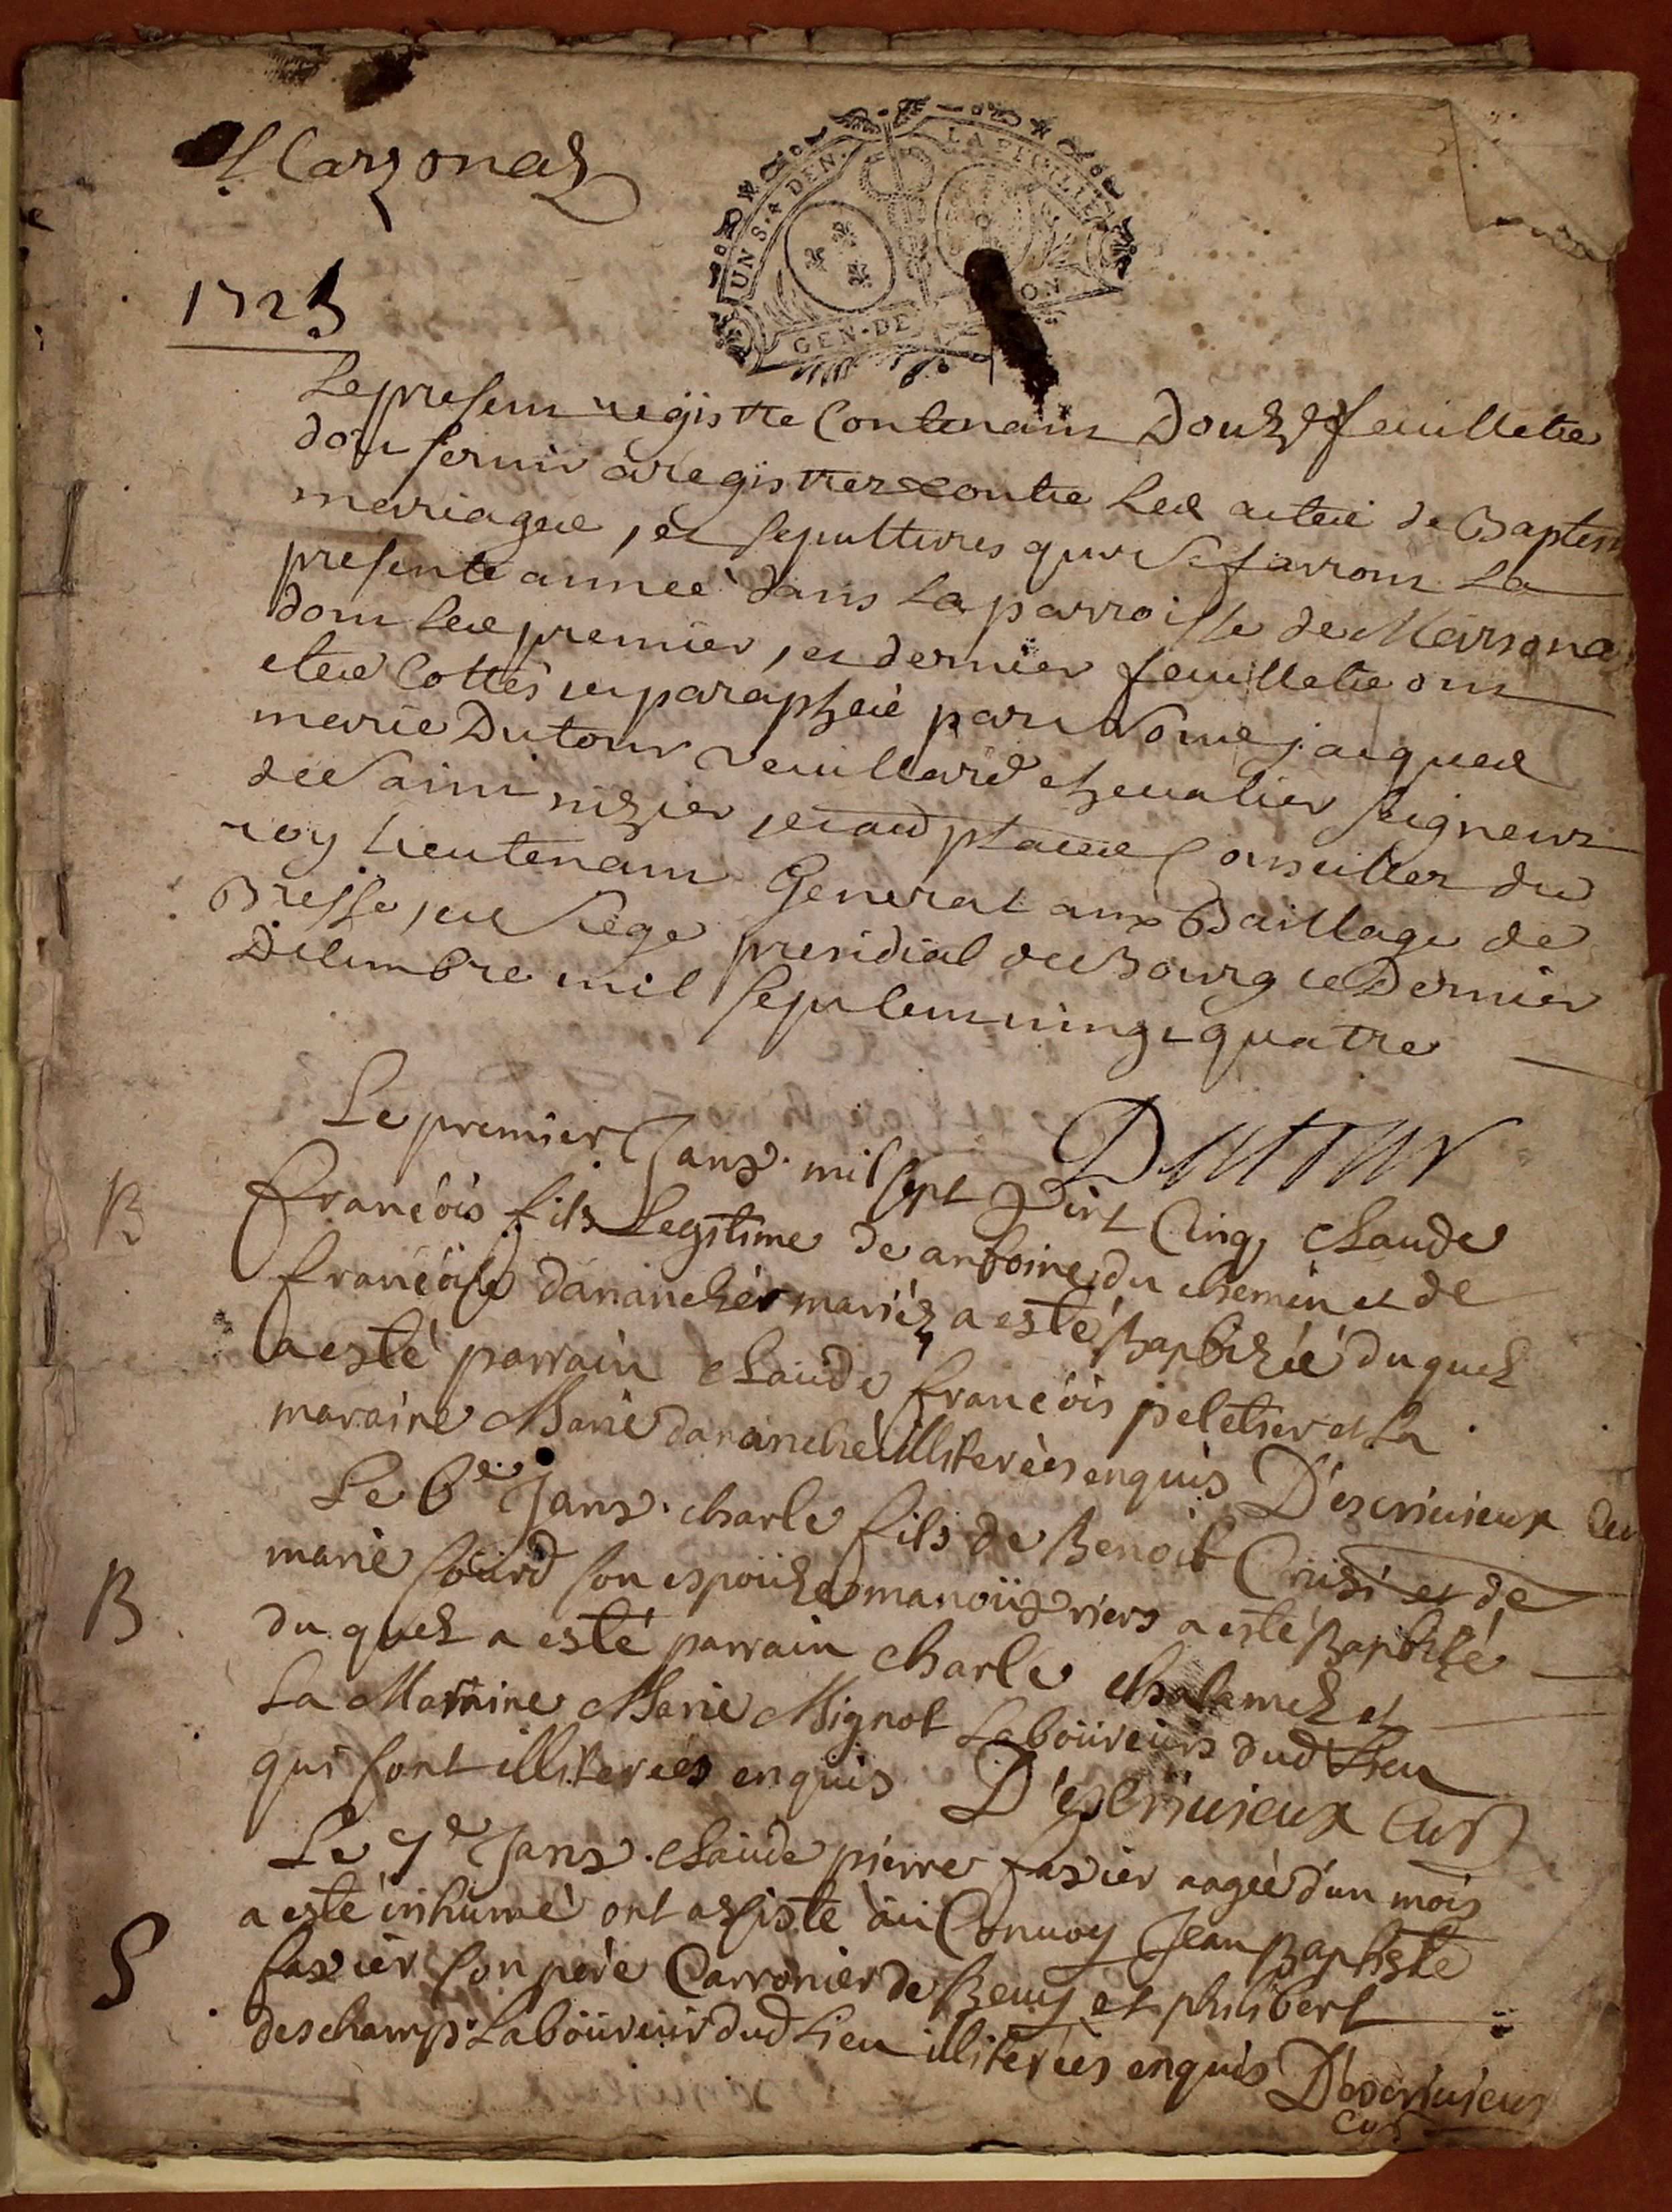 Marzonas
UN S. 4 DEN. LA FEUILLE
GEN. DE ON
1725
Le present registre Contenant Douze feuilletz
doit servir a registrer contre Les actes de Baptem
mariages, et sepultures qui se farront La
presente année dans La parroisse de Marsona
dont Les premier, et dernier feuilletz ont
etes Cottés et paraphés par Nous jacques
marie Dutour Veuillard chevalier seigneur
de Saint nizier Conseiller du
roy Lieutenant General aux Baillage de
Bresse, et Siege presidial de Bourg ce Dernier
Decembre mil sept cent vingt quatre
Dutour
Le premier Janv. mil sept vint Cinq, Claude
B
françois fils Legitime de antoine du chemin et de
françoise dananchér mariéz a esté Baptizéé duquel
a esté parrain Claude françois peletier et La
maraine Marie dananché illiterées enquis D'escrivieux Cu
Le 6e Janv. charle fils de Benoit Cruzi et de
B
marie sourd son espouze manouvriers a esté Baptizé
du quel a esté parrain charle chalamel et
La Marraine Marie Mignot Laboureurs dud Lieu
qui sont illiterées enquis D'escrivieux Curé
Le 7e Janv. Claude pierre favier aagée d'un mois
S
a esté inhumé ont assisté au Convoy Jean Baptiste
favier son père Carronier de Beny et philibert
deschamps Laboureur dud Lieu illiterées enquis D'escrivieux
curé